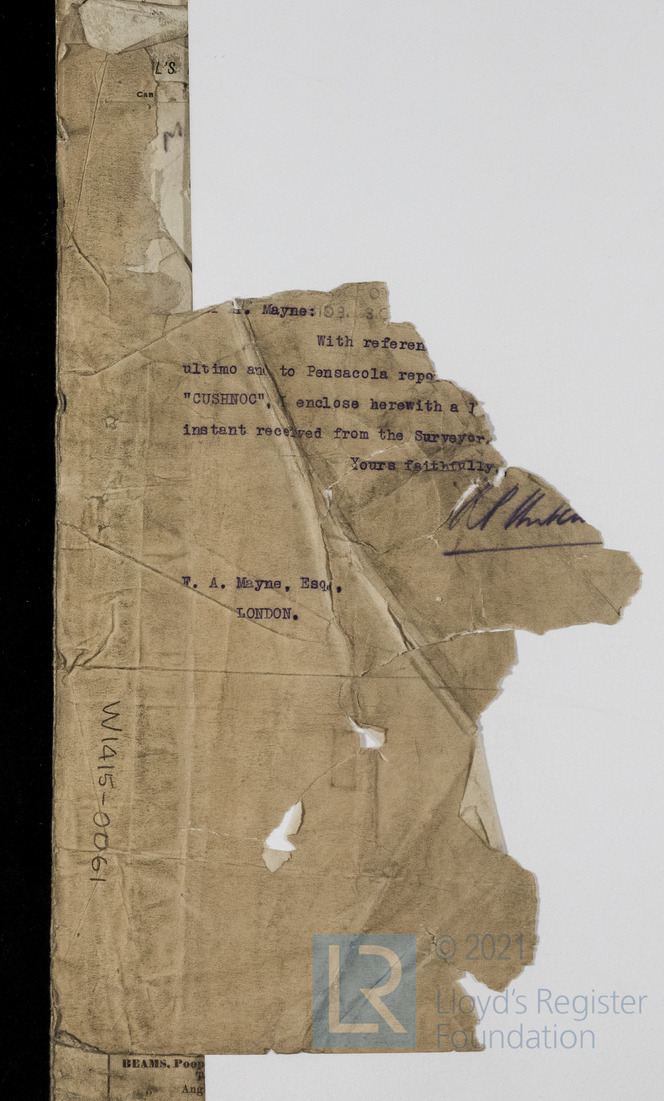 L'S
CAR
Mayne:
With referen
ultimo and to Pensacola repo
"CUSHNOC", I enclose herewith a
instant received from the Surveyor,
Yours faithfully,
F. A. Mayne, Esq.,
LONDON.
W1415-0061
LR
© 2021
Lloyd's Register
Foundation
BEAMS, Poop
T
Ang